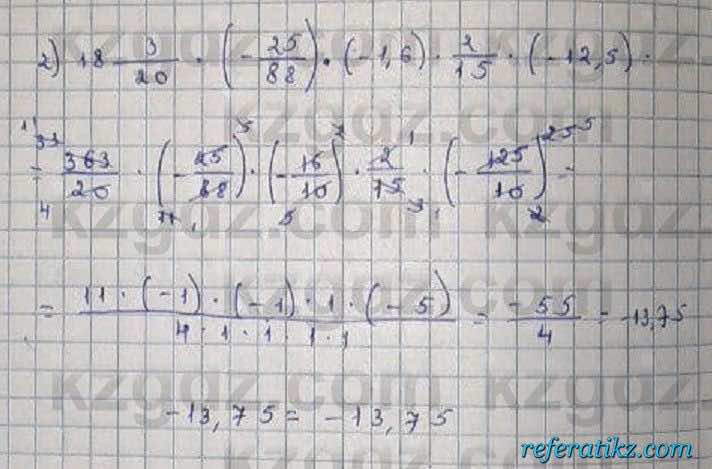 2) 18 3/20 · (- 25/88) · (-1,6) · 2/15 · (-12,5) ·
= 363/20 · (- 25/88) · (- 16/10) · 2/15 · (- 125/10) =
= 11 · (-1) · (-1) · 1 · (-5) / 4 · 1 · 1 · 1 · 1 = -55/4 = -13,75
-13,75 = -13,75
referatikz.com